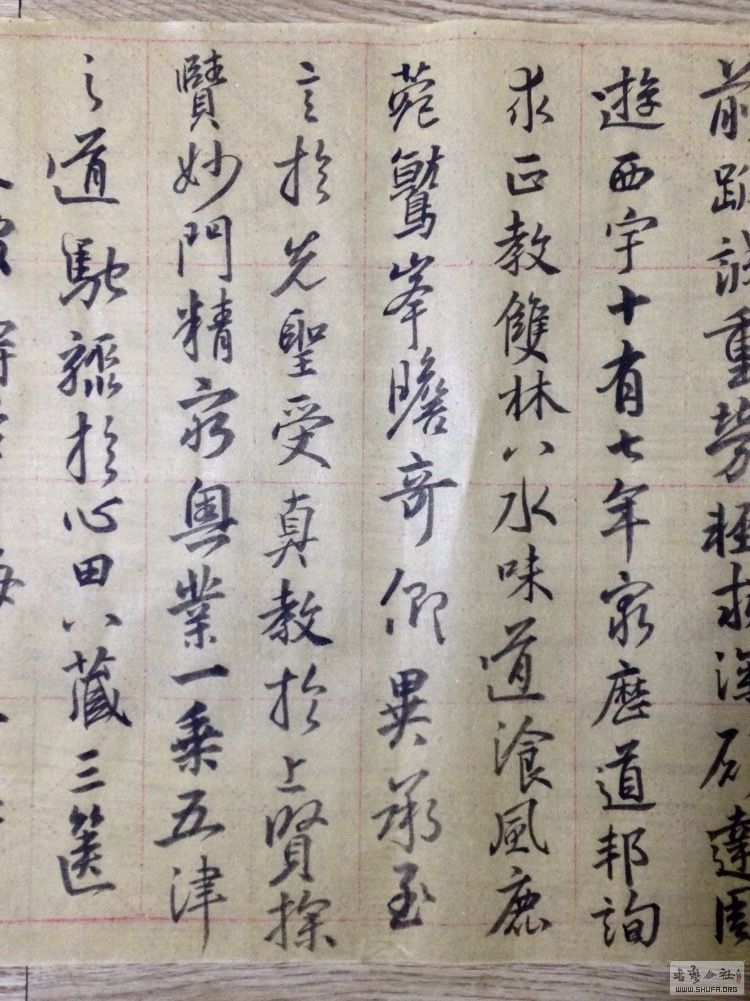 前蹤誠重勞輕求深願達周
遊西宇十有七年窮歷道邦詢
求正教雙林八水味道飡風鹿
菀鷲峯瞻奇仰異承至
言於先聖受真教於上賢探
賾妙門精窮奧業一乘五津
之道馳驟於心田八藏三篋
WWW.SHUFA.ORG